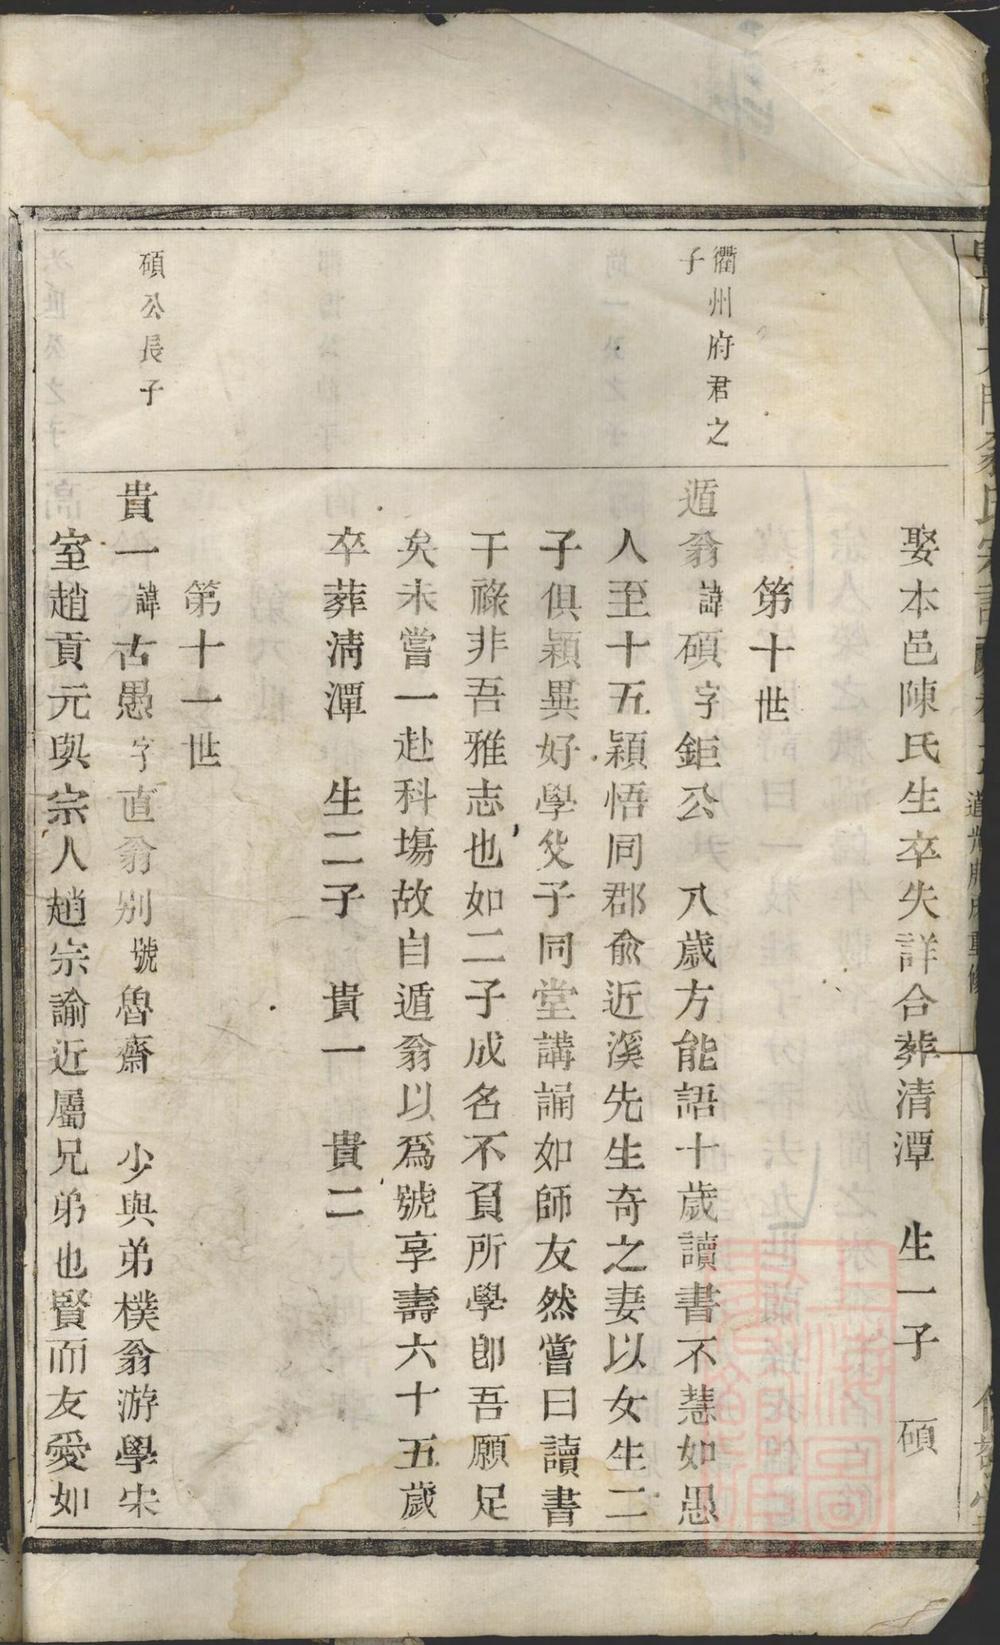 娶本邑陳氏生卒失詳合葬清潭　生一子　碩
第十世
衢州府君之
子
遁翁諱碩字鉅公　八歲方能語十歲讀書不慧如愚
人至十五穎悟同郡俞近溪先生奇之妻以女生二
子俱穎異好學父子同堂講誦如師友然嘗曰讀書
干祿非吾雅志也如二子成名不負所學卽吾願足
矣未嘗一赴科塲故自遁翁以爲號享壽六十五歲
卒葬淸潭　生二子　貴一　貴二
第十一世
碩公長子
貴一諱古愚字直翁別號魯齋　少與弟樸翁游學宋
室趙貢元與宗人趙宗諭近屬兄弟也賢而友愛如